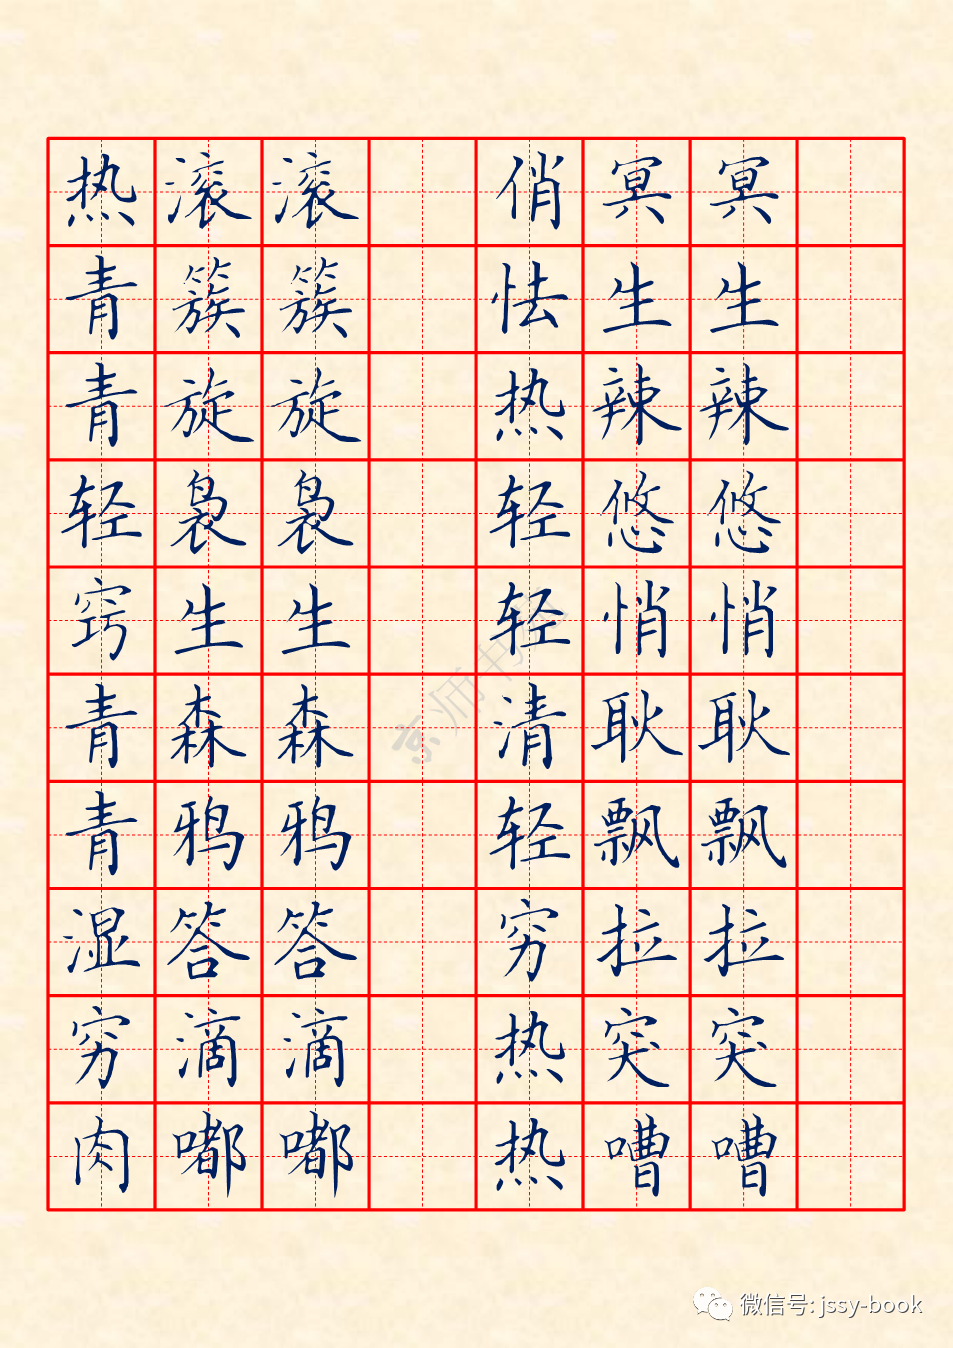 热滚滚 俏冥冥
青簇簇 怯生生
青旋旋 热辣辣
轻袅袅 轻悠悠
窍生生 轻悄悄
青森森 清耿耿
青鸦鸦 轻飘飘
湿答答 穷拉拉
穷滴滴 热突突
肉嘟嘟 热嘈嘈
京师书
微信号: jssy-book